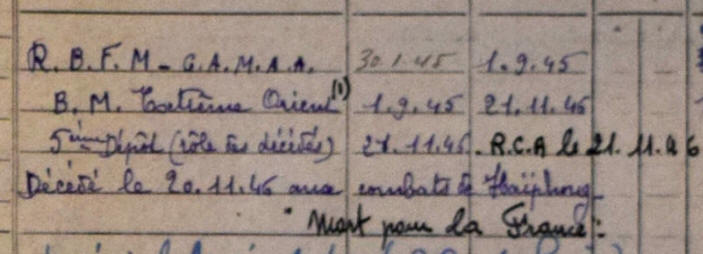 R. B. F. M - G. A. M. A. A. 30.1.45 1.9.45
B. M. Extrême Orient (1) 1.9.45 21.11.46
5ème Dépôt (rôle des décédés) 21.11.46. R.C.A le 21.11.46
Décédé le 20.11.46 aux combats de Haïphong
"Mort pour la France".